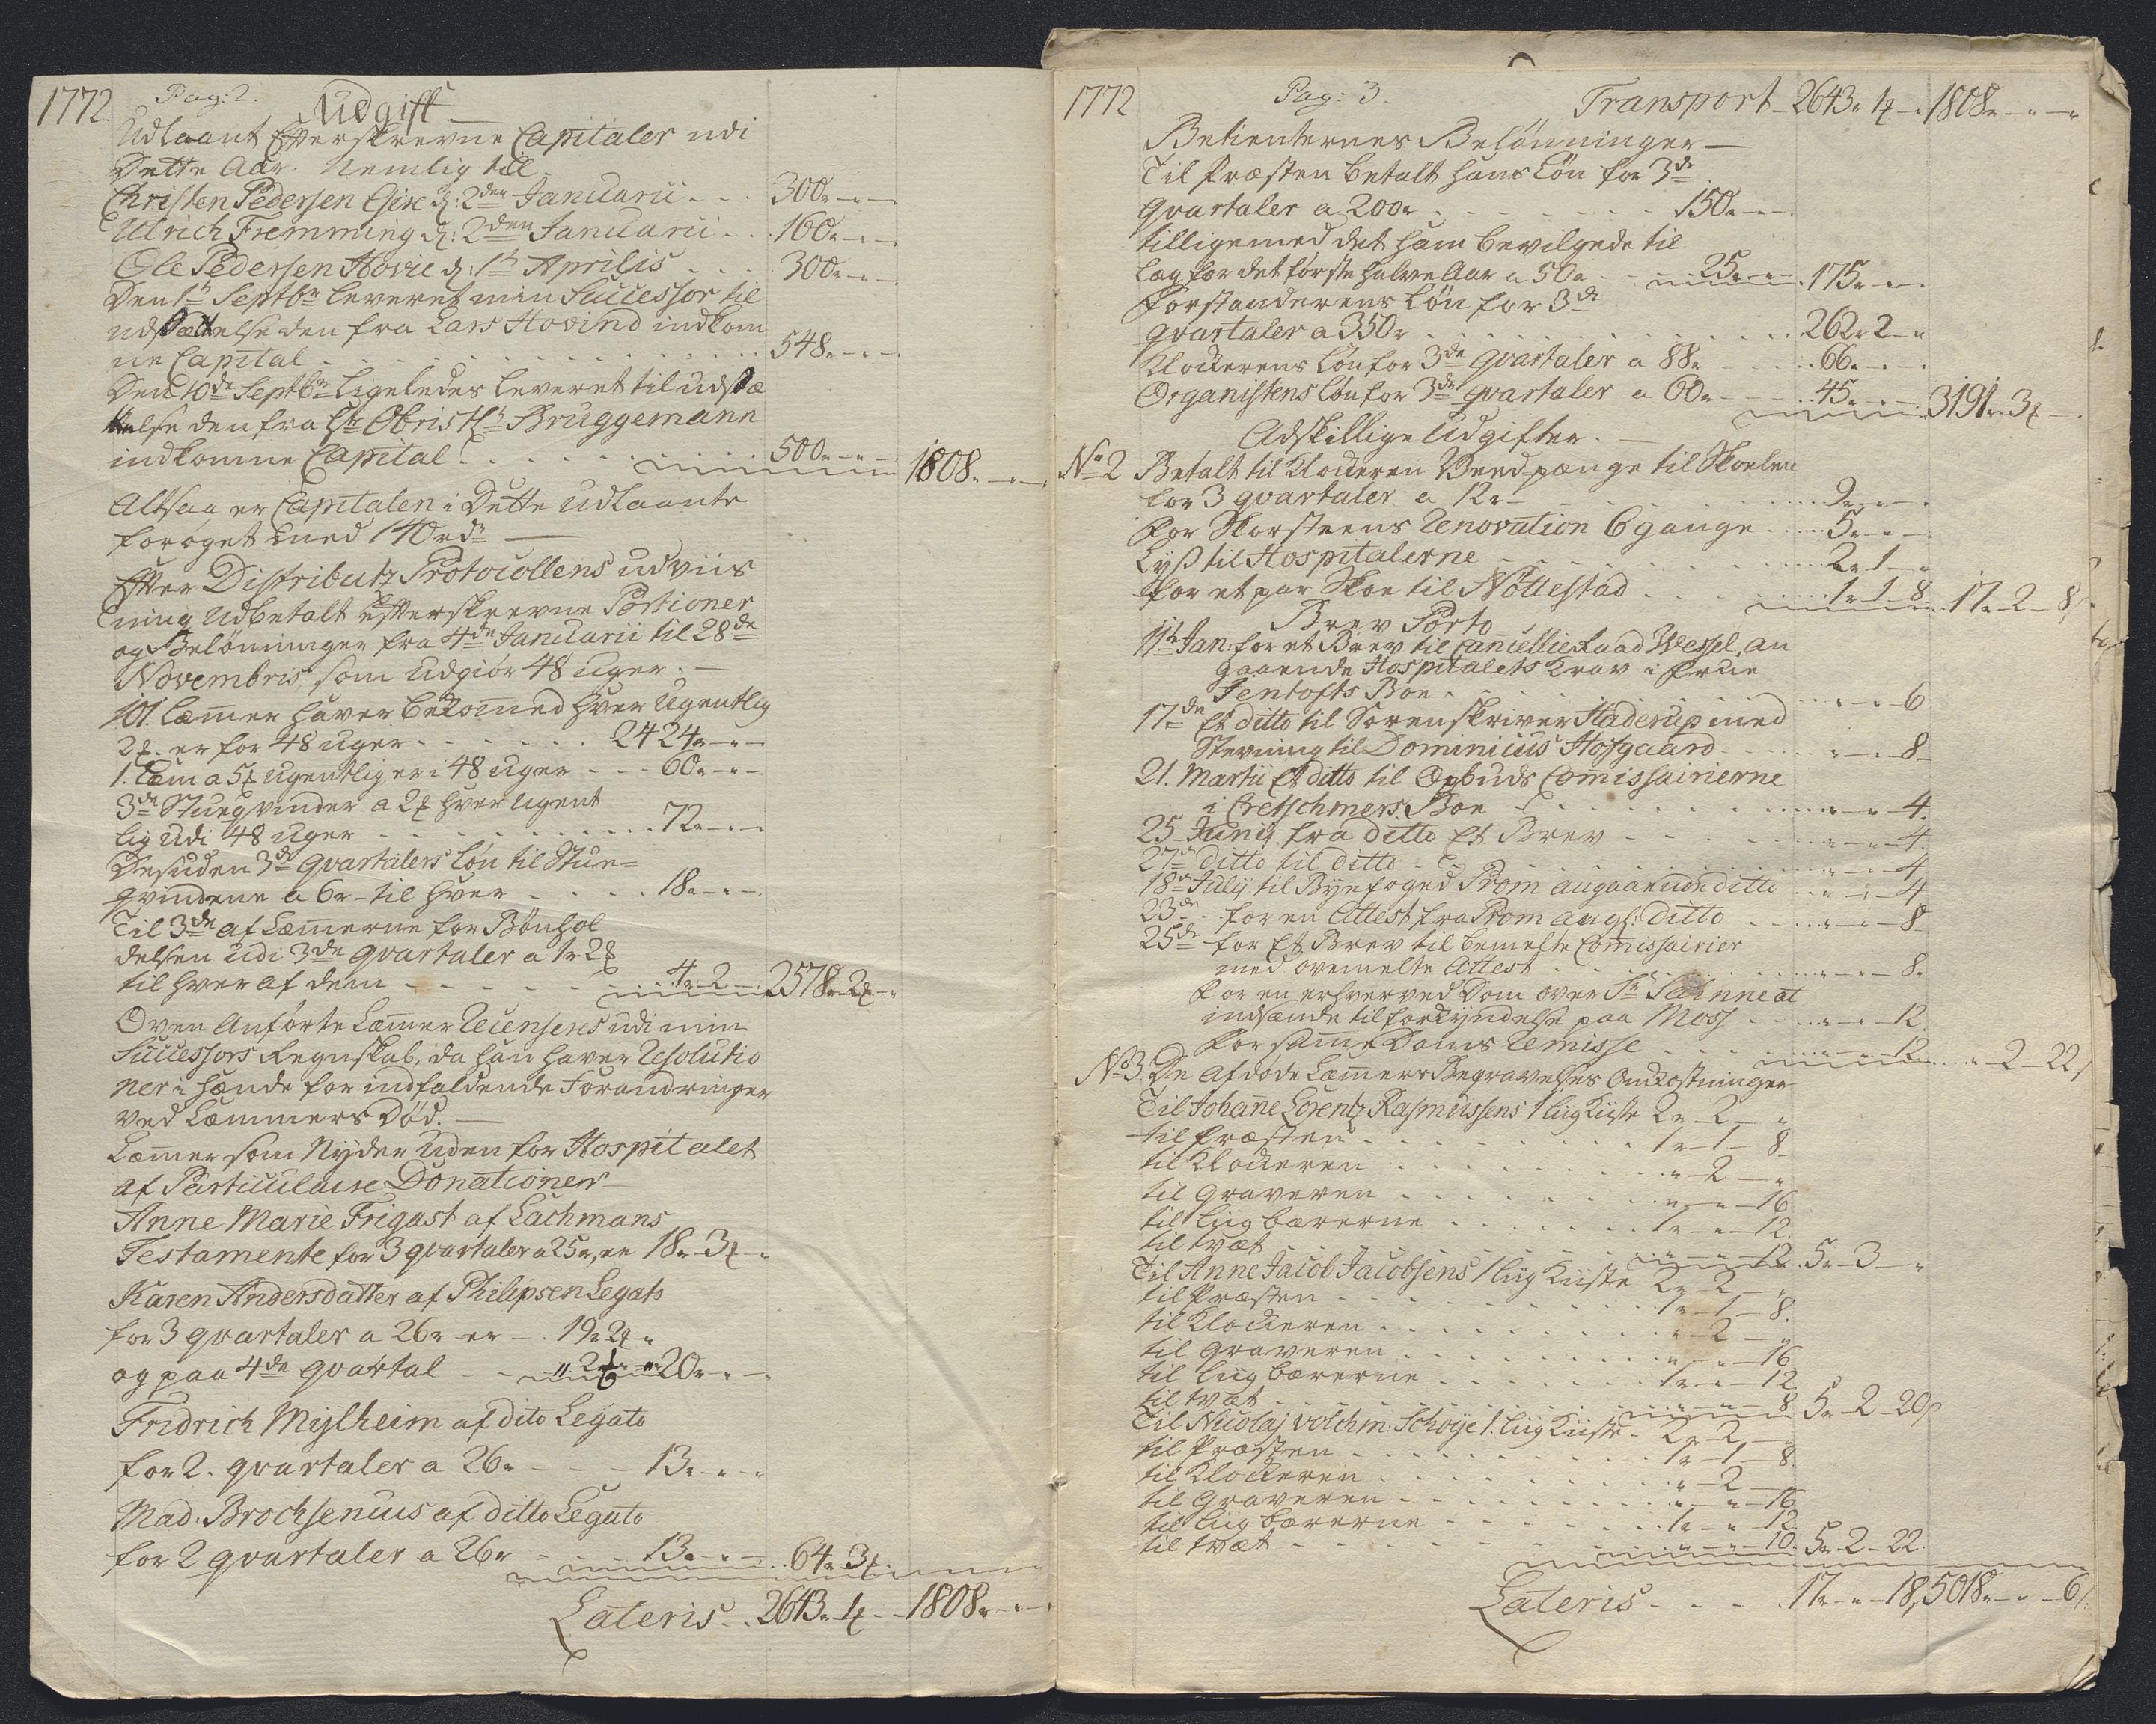 1772. Pag: 2. Udgift
Udlaant Efterskrevne Capitaler udi
Dette Aar. Nemlig till
Christen Pedersen Gire d: 2den Januarii . . . 300r „ „
Ulrich Fremming d: 2den Januarii . . 160 „ „
Ole Pedersen Hovie d: 1te Aprilis . . . 300r „ „
Den 1te Septbr leveret min Successor til
udsættelse den fra Lars Hovind indkom
ne Capital . . . 548 „ „
Den 10de Septbr ligeledes leveret til udsæ
ttelse den fra Hr Obristl: Bruggemann
indkomne Capital . . . 500 „ „ 1808 „ „
Altsaa er Capitalen i Dette Udlaante
forøget med 140 rdr
Efter Distributz Protocollens udviis
ning Udbetalt efterskrevne Portioner
og Belønninger fra 4de Januarii til 28de
Novembris, som udgiør 48 uger. —
101. Lemmer haver bekommed hver Ugentlig
2ꝑ. er for 48 uger . . . 2424r „ „
1. Lem a 5ꝑ ugentlig er i 48 uger . . . 60 „ „
3de Stueqvinder a 2ꝑ hver ugent
lig udi 48 uger . . . 72 „ „
Desuden 3de qvartalers løn til Stue=
qvindene a 6r – til hver . . . 18 „ „
Til 3de af Lemmerne for Bønhol
delsen udi 3de qvartaler a 1r 2ꝑ
til hver af dem . . . 4r 2 „ 2578r 2ꝑ „
Oven Anførte Lemmer Recenseres udi min
Successors Regnskab, da han haver Resolutio
ner i Hænde for indfaldende Forandringer
ved Lemmers Død. —
Lemmer som Nyder uden for Hospitalet
af Particulaire Donationer
Anne Marie Frigast af Lachmans
Testamente for 3 qvartaler a 25r, er 18r 3ꝑ „
Karen Andersdatter af Philipsen Legato
for 3 qvartaler a 26r er – 19r 2ꝑ „
og paa 4de qvartal . . „ 2ꝑ „ 20r „ „
Fridrich Mylheim af dito Legato
for 2. qvartaler a 26r . . . 13 „ „
Mad. Brochsenius af ditto Legato
for 2 qvartaler a 26r . . . 13 „ „ 64r 3ꝑ
Lateris . . 2643r 1ꝑ „ 1808r „ „
1772 Pag: 3. Transport 2643r 1ꝑ „ 1808r „ „
Betienternes Belønninger —
Til Præsten betalt hans Løn for 3de
qvartaler a 200r . . . 150 „ „
tilligemed det ham bevilgede til
læg for det første halve Aar a 50r . . 25 „ „ 175 „ „
Forstanderens Løn for 3de
qvartaler a 350r . . . 262r 2 „
Klockerens Løn for 3de qvartaler a 88r . . . 66 „ „
Organistens Løn for 3de qvartaler a 60r . . . 45 „ „ 3191r 3ꝑ „
Adskillige Udgifter. —
No 2 Betalt til Klockeren Veed penge til Skoelen
for 3 qvartaler a 12r . . . 9 „ „
For Skorsteens Renovation 6 gange . . . 5 „ „
Lyß til Hospitalerne . . . 2r 1 „
for et par Skoe til Nøttestad . . . 1r 1 8 17r 2 8ß
Brev Porto
11te Jan: for et Brev til Cancellie Raad Wessel, an
gaaende Hospitalets Krav i Frue
Jentofts Boe . . . „ „ 6
17de Et ditto til Sorenskriver Haderup med
Stevning til Dominicus Hofgaard . . . „ „ 8
21. Martii Et ditto til Opbuds Comissairierne
i Cretschmers Boe . . . „ „ 4.
25 Junij fra ditto Et Brev . . . „ „ 4.
27de ditto til ditto . . . „ „ 4
18de Julij til Byefoged Prom angaaende ditto . . . „ „ 4
23de . . for en Attest fra Prom ang: ditto . . . „ „ 8
25de for Et Brev til bemelte Comissairier
med ovenmelte Attest . . . „ „ 8.
For en erhverved Dom over Sr at
indsænde til forkyndelse paa Moss . . . „ „ 12
For samme Doms Remisse . . . „ „ 12 „ 2 22ß
No 3. De afdøde Lemmers Begravelses Omkostninger
Til Johanne Lorentz Rasmussens 1 liig Kiiste 2r 2 „
til Præsten . . . 1r 1 8
til Klockeren . . . „ 2 „
til Graveren . . . „ „ 16
til liigbærerne . . . 1r „ 12.
til tvæt . . . „ „ 12 5r 3 „
Til Anne Jacob Jacobsens 1 liig Kiiste 2r 2 „
til Præsten . . . 1r 1 8.
til Klockeren . . . „ 2 „
til Graveren . . . „ „ 16
til liigbærerne . . . 1r „ 12
til tvæt . . . „ „ 8 5r 2 20ß
Til Nicolaj Volchm: Schøye 1. liig Kiiste . 2r 2 „
til Præsten . . . 1r 1 8.
til Klockeren . . . „ 2 „
til Graveren . . . „ „ 16
til liigbærerne . . . 1r „ 12
til tvæt . . . „ „ 10. 5r 2 22.
Lateris . . . 17r „ 18ß 5018r „ 6ß